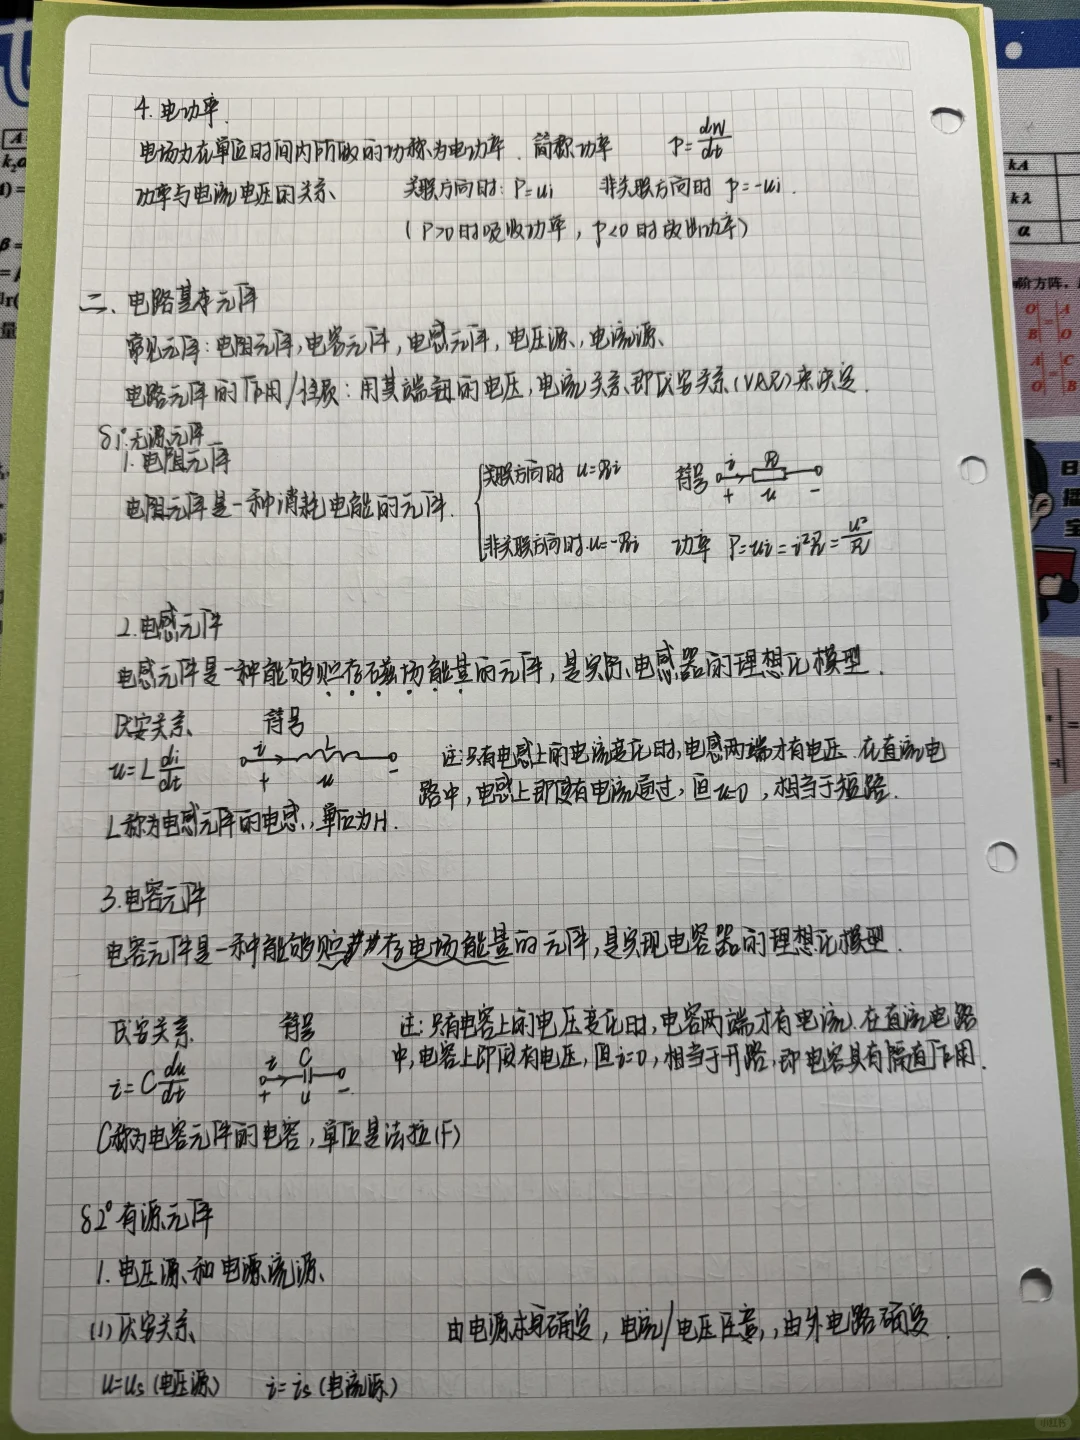 4. 电功率.
电场力在单位时间内所做的功称为电功率. 简称功率 P=dW/dt
功率与电流电压的关系、 关联方向时: P=ui 非关联方向时 p=-ui.
(P>0时吸收功率, p<0时放出功率)
二、电路基本元件
常见元件: 电阻元件, 电容元件, 电感元件, 电压源、电流源、
电路元件的作用/性质: 用其端钮的电压, 电流关系、即伏安关系(VAR)来决定.
§1°无源元件
1. 电阻元件
电阻元件是一种消耗电能的元件.
关联方向时 u=Ri 符号 i R + u -
非关联方向时 u=-Ri 功率 P=ui=i²R=u²/R
2. 电感元件
电感元件是一种能够贮存磁场能量的元件, 是实际电感器的理想化模型.
伏安关系、 符号 i L + u -
u=L di/dt 注:只有电感上的电流变化时,电感两端才有电压. 在直流电
路中, 电感上即使有电流通过, 但u=0, 相当于短路.
L称为电感元件的电感, 单位为H.
3.电容元件
电容元件是一种能够贮存电场能量的元件, 是实现电容器的理想化模型.
伏安关系、 符号 i C + u - 注: 只有电容上的电压变化时, 电容两端才有电流. 在直流电路
i=C du/dt 中, 电容上即使有电压, 但i=0, 相当于开路, 即电容具有隔直作用.
C称为电容元件的电容, 单位是法拉(F)
§2°有源元件
1. 电压源和电源流源、
(1)伏安关系、 由电源本身确定, 电流/电压任意, 由外电路确定.
u=us(电压源) i=is(电流源)
A
kA
kλ
α
阶方阵,
O A
B O
A C
O B
β=
量
日
播
宝